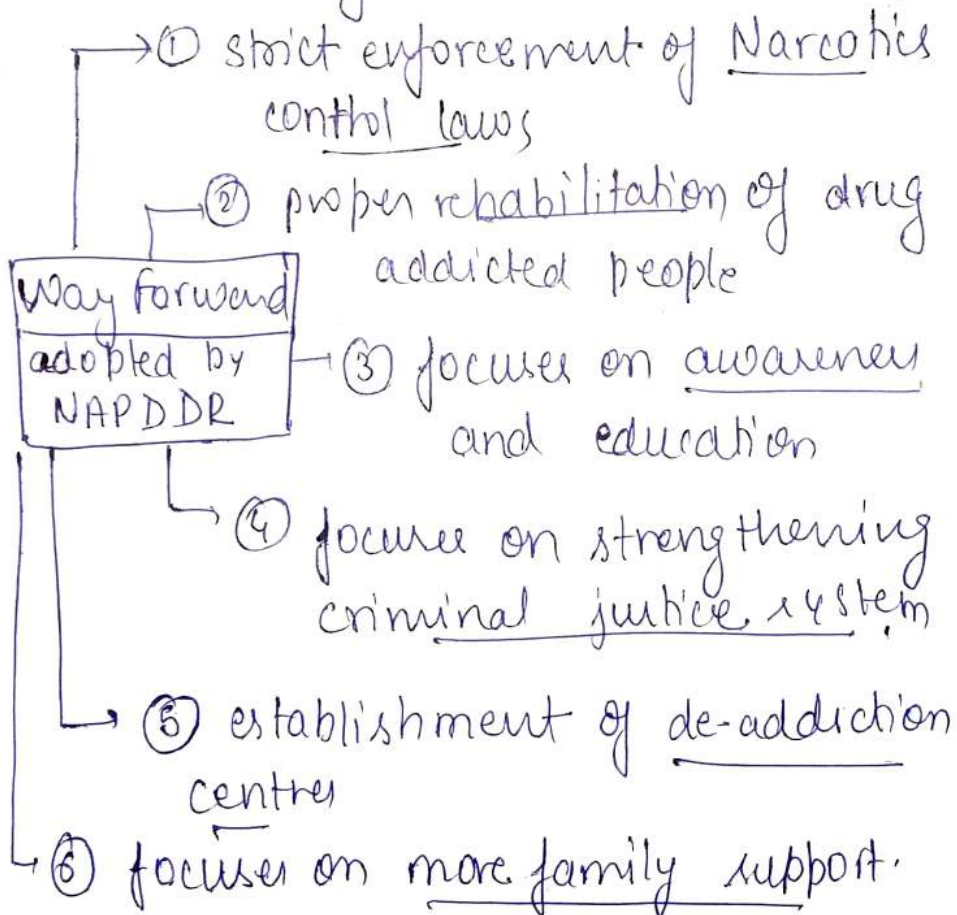 ① strict enforcement of Narcotics
control laws
② proper rehabilitation of drug
addicted people
Way forward
adopted by
NAPDDR
③ focuses on awareness
and education
④ focuses on strengthening
criminal justice system.
⑤ establishment of de-addiction
centres
⑥ focuses on more family support.